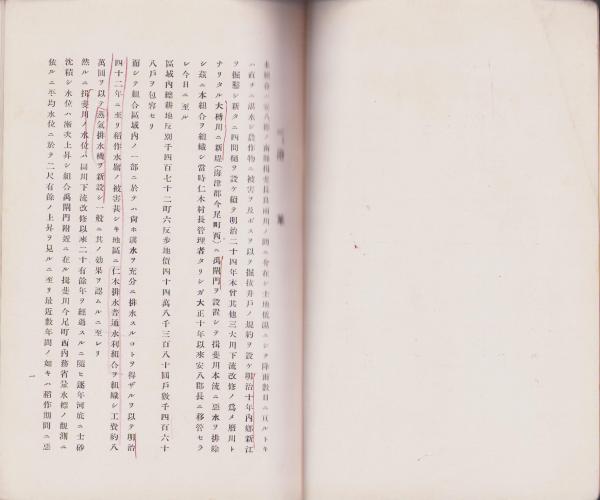 ハ直チニ湛水シ農作物ニ被害ヲ及ボスヲ以テ掘抜井戸ノ規約ヲ設ケ明治十年內鄕新江
ヲ掘鑿シ新タニ四間樋ヲ設ケ續ヲ明治二十四年木曾其他三大川下流改修ノ爲メ廢川ト
ナリタル大榑川ニ新堤(海津郡今尾町西)ニ萬閘門ヲ設置シテ揖斐川本流ニ惡水ヲ排除
シ茲ニ本組合ヲ組織シ當時仁木村長管理者タリシガ大正十年以來安八郡長ニ移管セラ
レ今日ニ至ル
區域內總耕地反別千四百七十二町六反步地價四十四萬八千三百八十圓戶數千四百六十
八戶ヲ包容セリ
而シテ組合區域內ノ一部ニ於テハ尙ホ湛水ヲ充分ニ排水スルコトヲ得ザルヲ以テ明治
四十二年ニ至リ稻作水腐ノ被害甚シキ地區ニ仁木排水普通水利組合ヲ組織シ工費約八
萬圓ヲ以テ蒸氣排水機ヲ新設シ一般ニ其ノ効果ヲ認ムルニ至レリ
然ルニ揖斐川ノ水位ハ同川下流改修以來二十有餘年ヲ經過スルニ隨ヒ逐年河底ニ土砂
沈積シ水位ハ漸次上昇シ組合萬閘門附近ニ在ル揖斐川今尾町西內務省量水標ノ觀測ニ
依ルニ平均水位ニ於テ二尺有餘ノ上昇ヲ見ルニ至リ最近數年間ノ如キハ稻作期間ニ惡
一